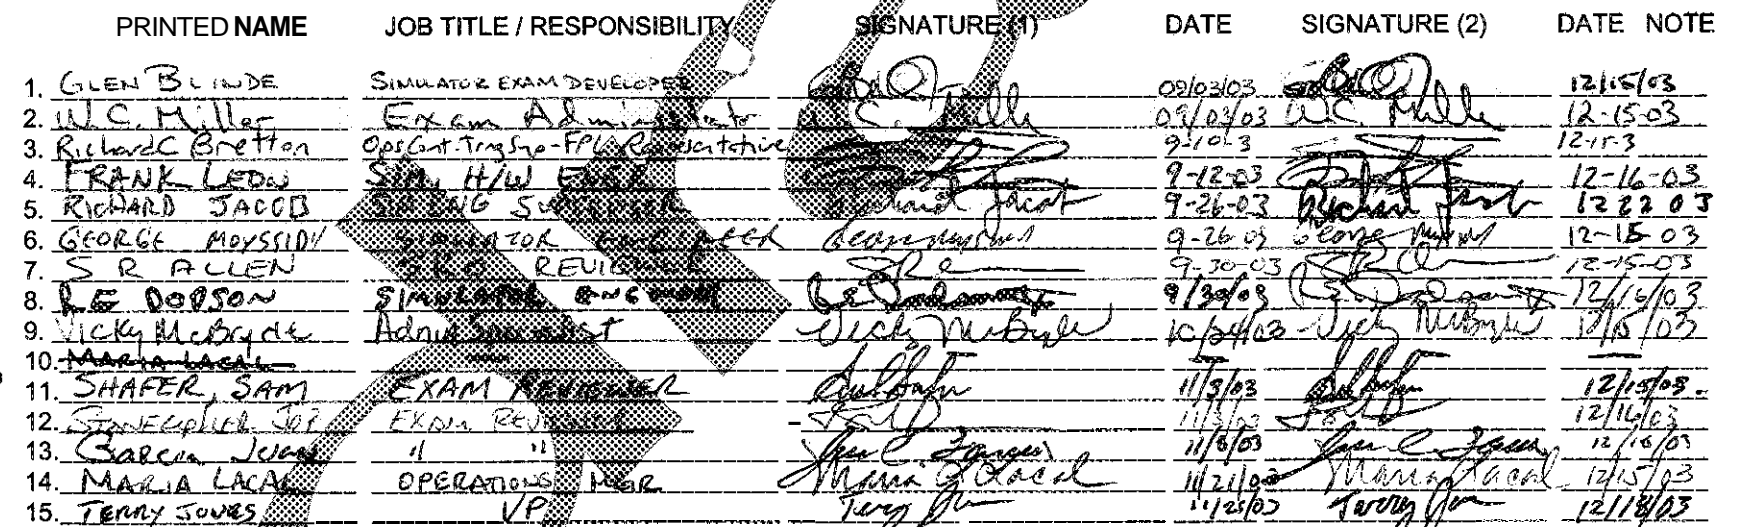 PRINTED NAME JOB TITLE / RESPONSIBILITY SIGNATURE (1) DATE SIGNATURE (2) DATE NOTE
1. GLEN BLINDE SIMULATOR EXAM DEVELOPER 09/03/03 12/15/03
2. W.C. Miller Exam Administrator W.C. Mille 09/03/03 W.C. Mille 12-15-03
3. Richard C Bretton Ops Cont. Trng Sup-FPL Representative 9-10-3 12-15-3
4. FRANK LEON SIM. H/W ENGR 9-12-03 12-16-03
5. RICHARD JACOB SUPERVISOR Richard Jacob 9-26-03 Richard Jacob 12 22 03
6. GEORGE MOYSSIDIS SIMULATOR ENGINEER 9-26-03 George 12-15-03
7. S R ALLEN SRO REVIEWER 9-30-03 12-15-03
8. R E DODSON SIMULATOR ENGINEER 9/30/03 12/16/03
9. Vicky McBryde Admin Specialist Vicky McBryde 10/24/03 Vicky McBryde 12/15/03
10. MARIA LACAL
11. SHAFER, SAM EXAM REVIEWER 11/3/03 12/15/03
12. STONECIPHER JOE EXAM REVIEWER 12/16/03
13. Garcia Juan " " 12/16/03
14. MARIA LACAL OPERATIONS MGR. Maria Lacal 11/21/03 Maria Lacal 12/15/03
15. TERRY JONES VP Terry 11/25/03 Terry 12/18/03